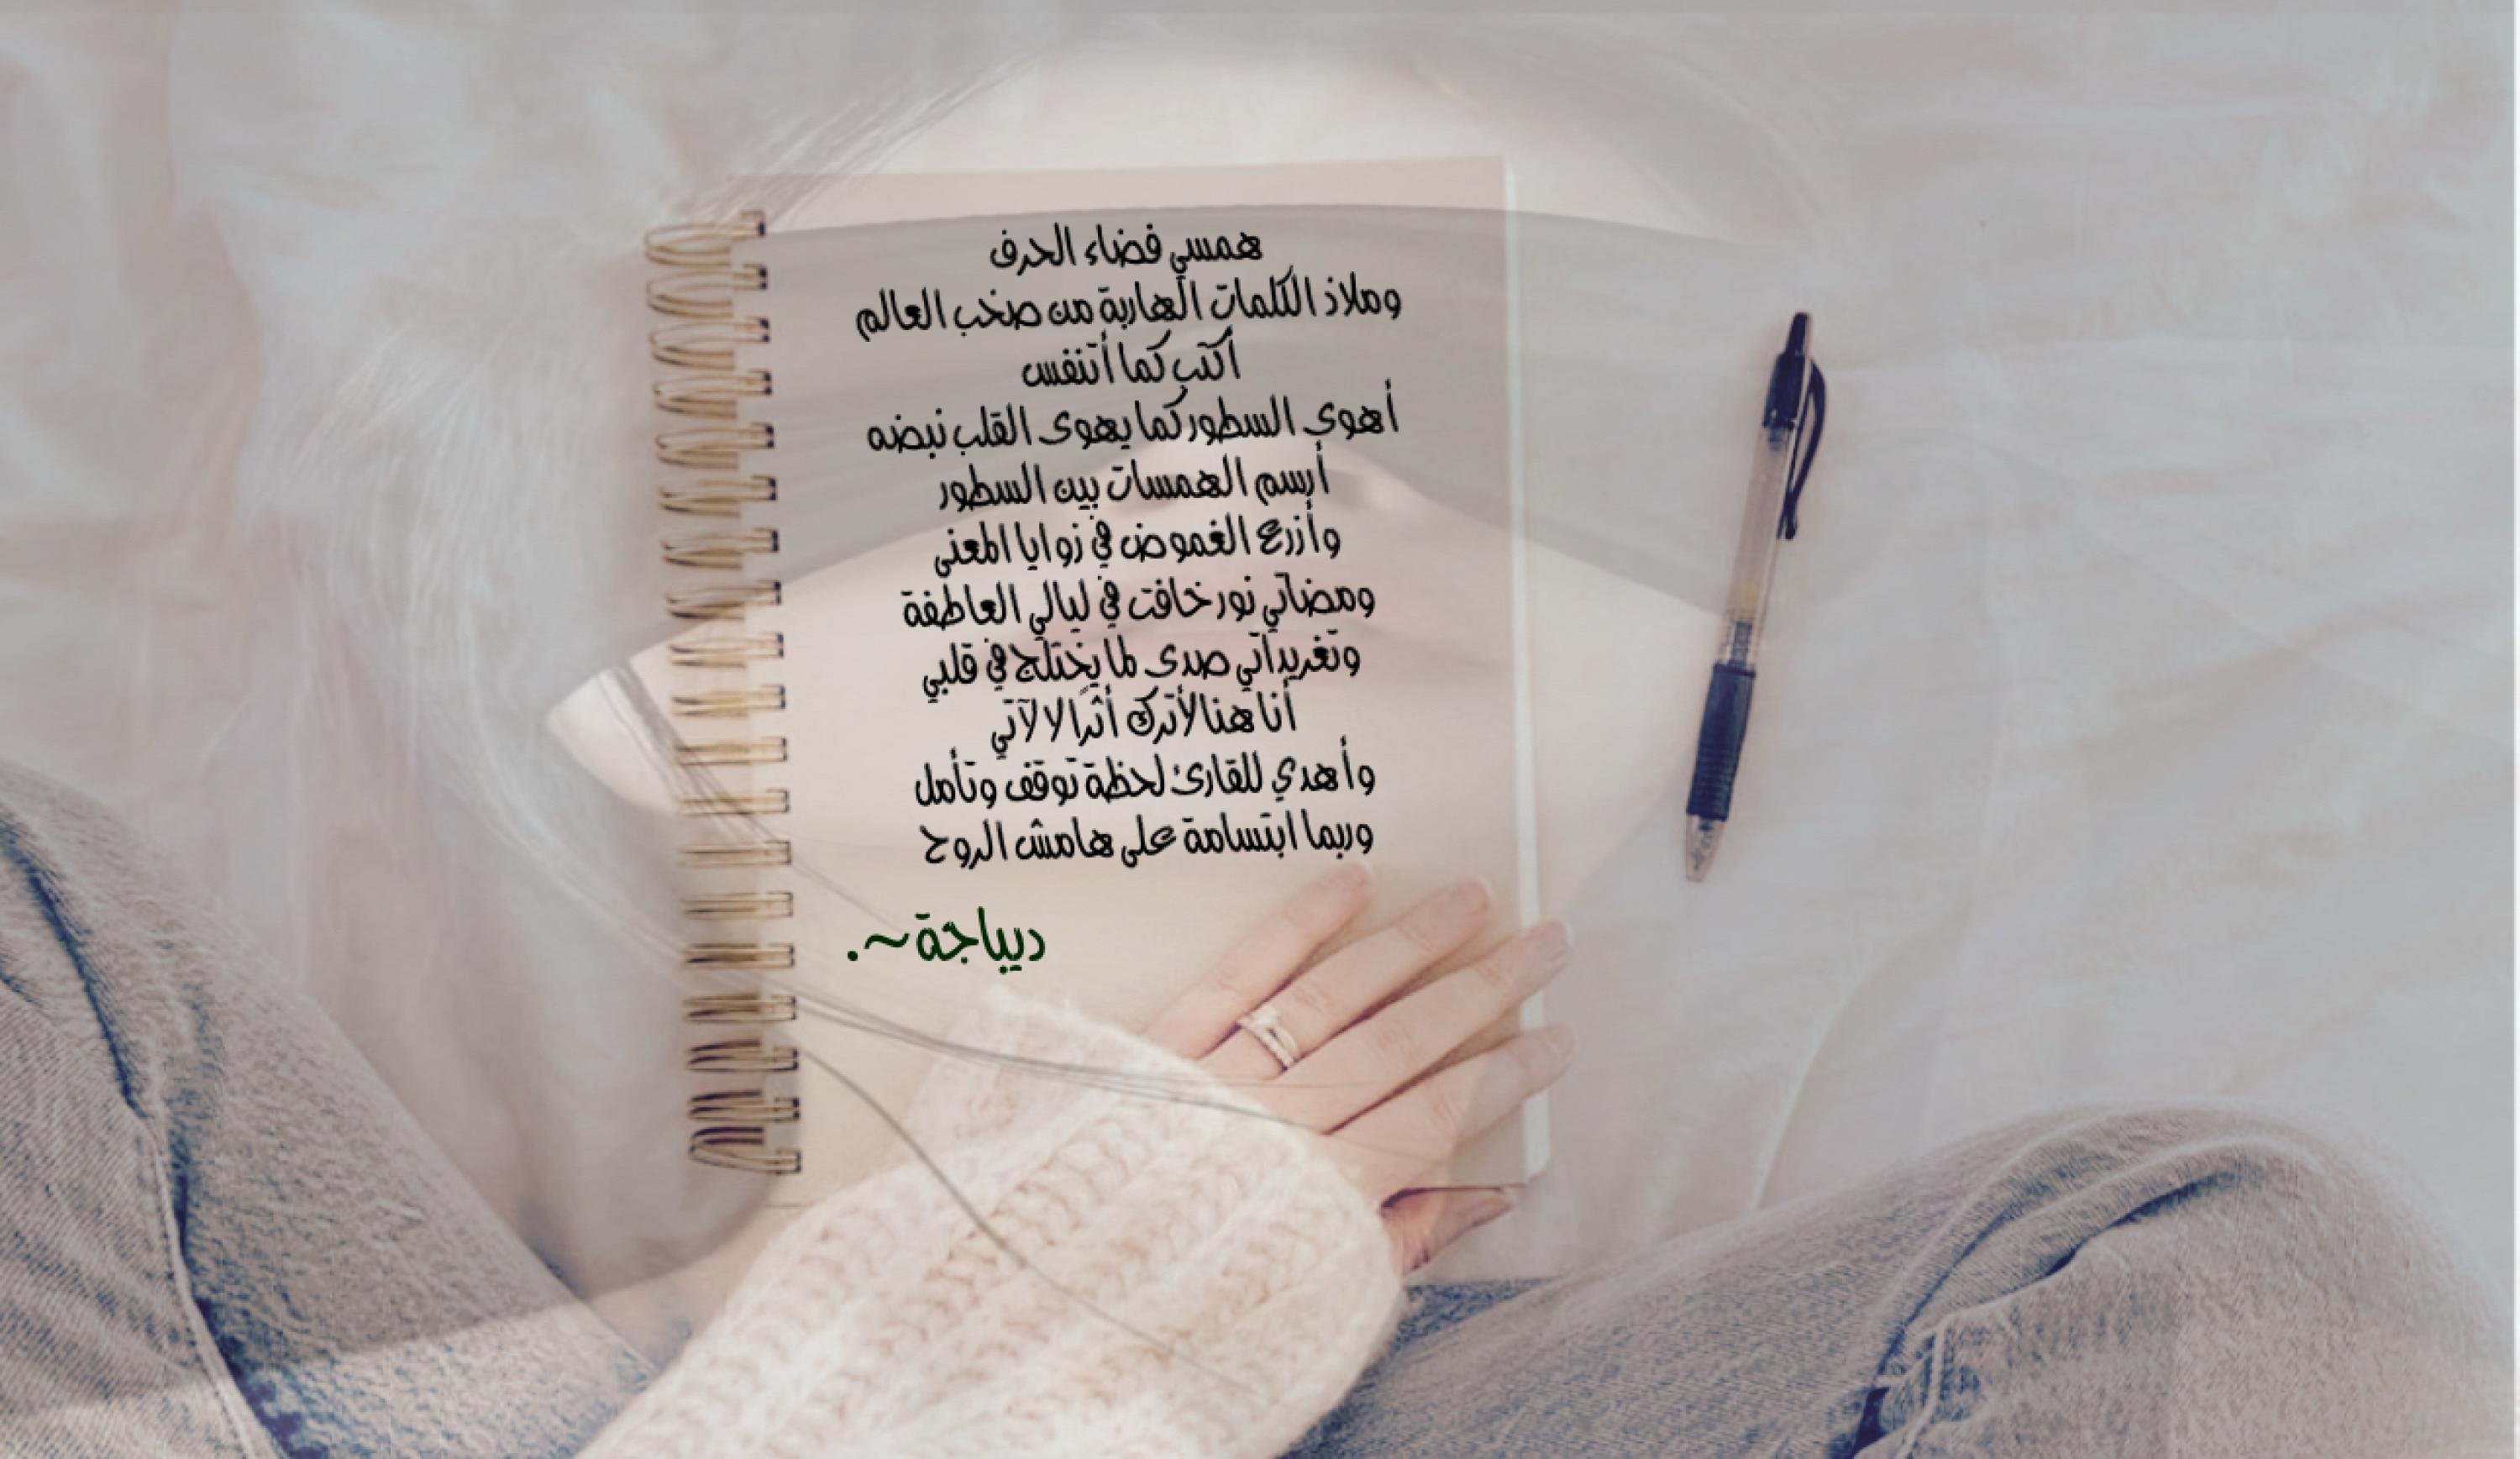 همسي فضاء الحرف
وملاذ الكلمات الهاربة من صخب العالم
أكتب كما أتنفس
أهوى السطور كما يهوى القلب نبضه
أرسم الهمسات بين السطور
وأزرع الغموض في زوايا المعنى
ومضاتي نور خافت في ليالي العاطفة
وتغريداتي صدى لما يختلج في قلبي
أنا هنا لأترك أثرًا لا لآتي
وأهدي للقارئ لحظة توقف وتأمل
وربما ابتسامة على هامش الروح
ديباجة~.